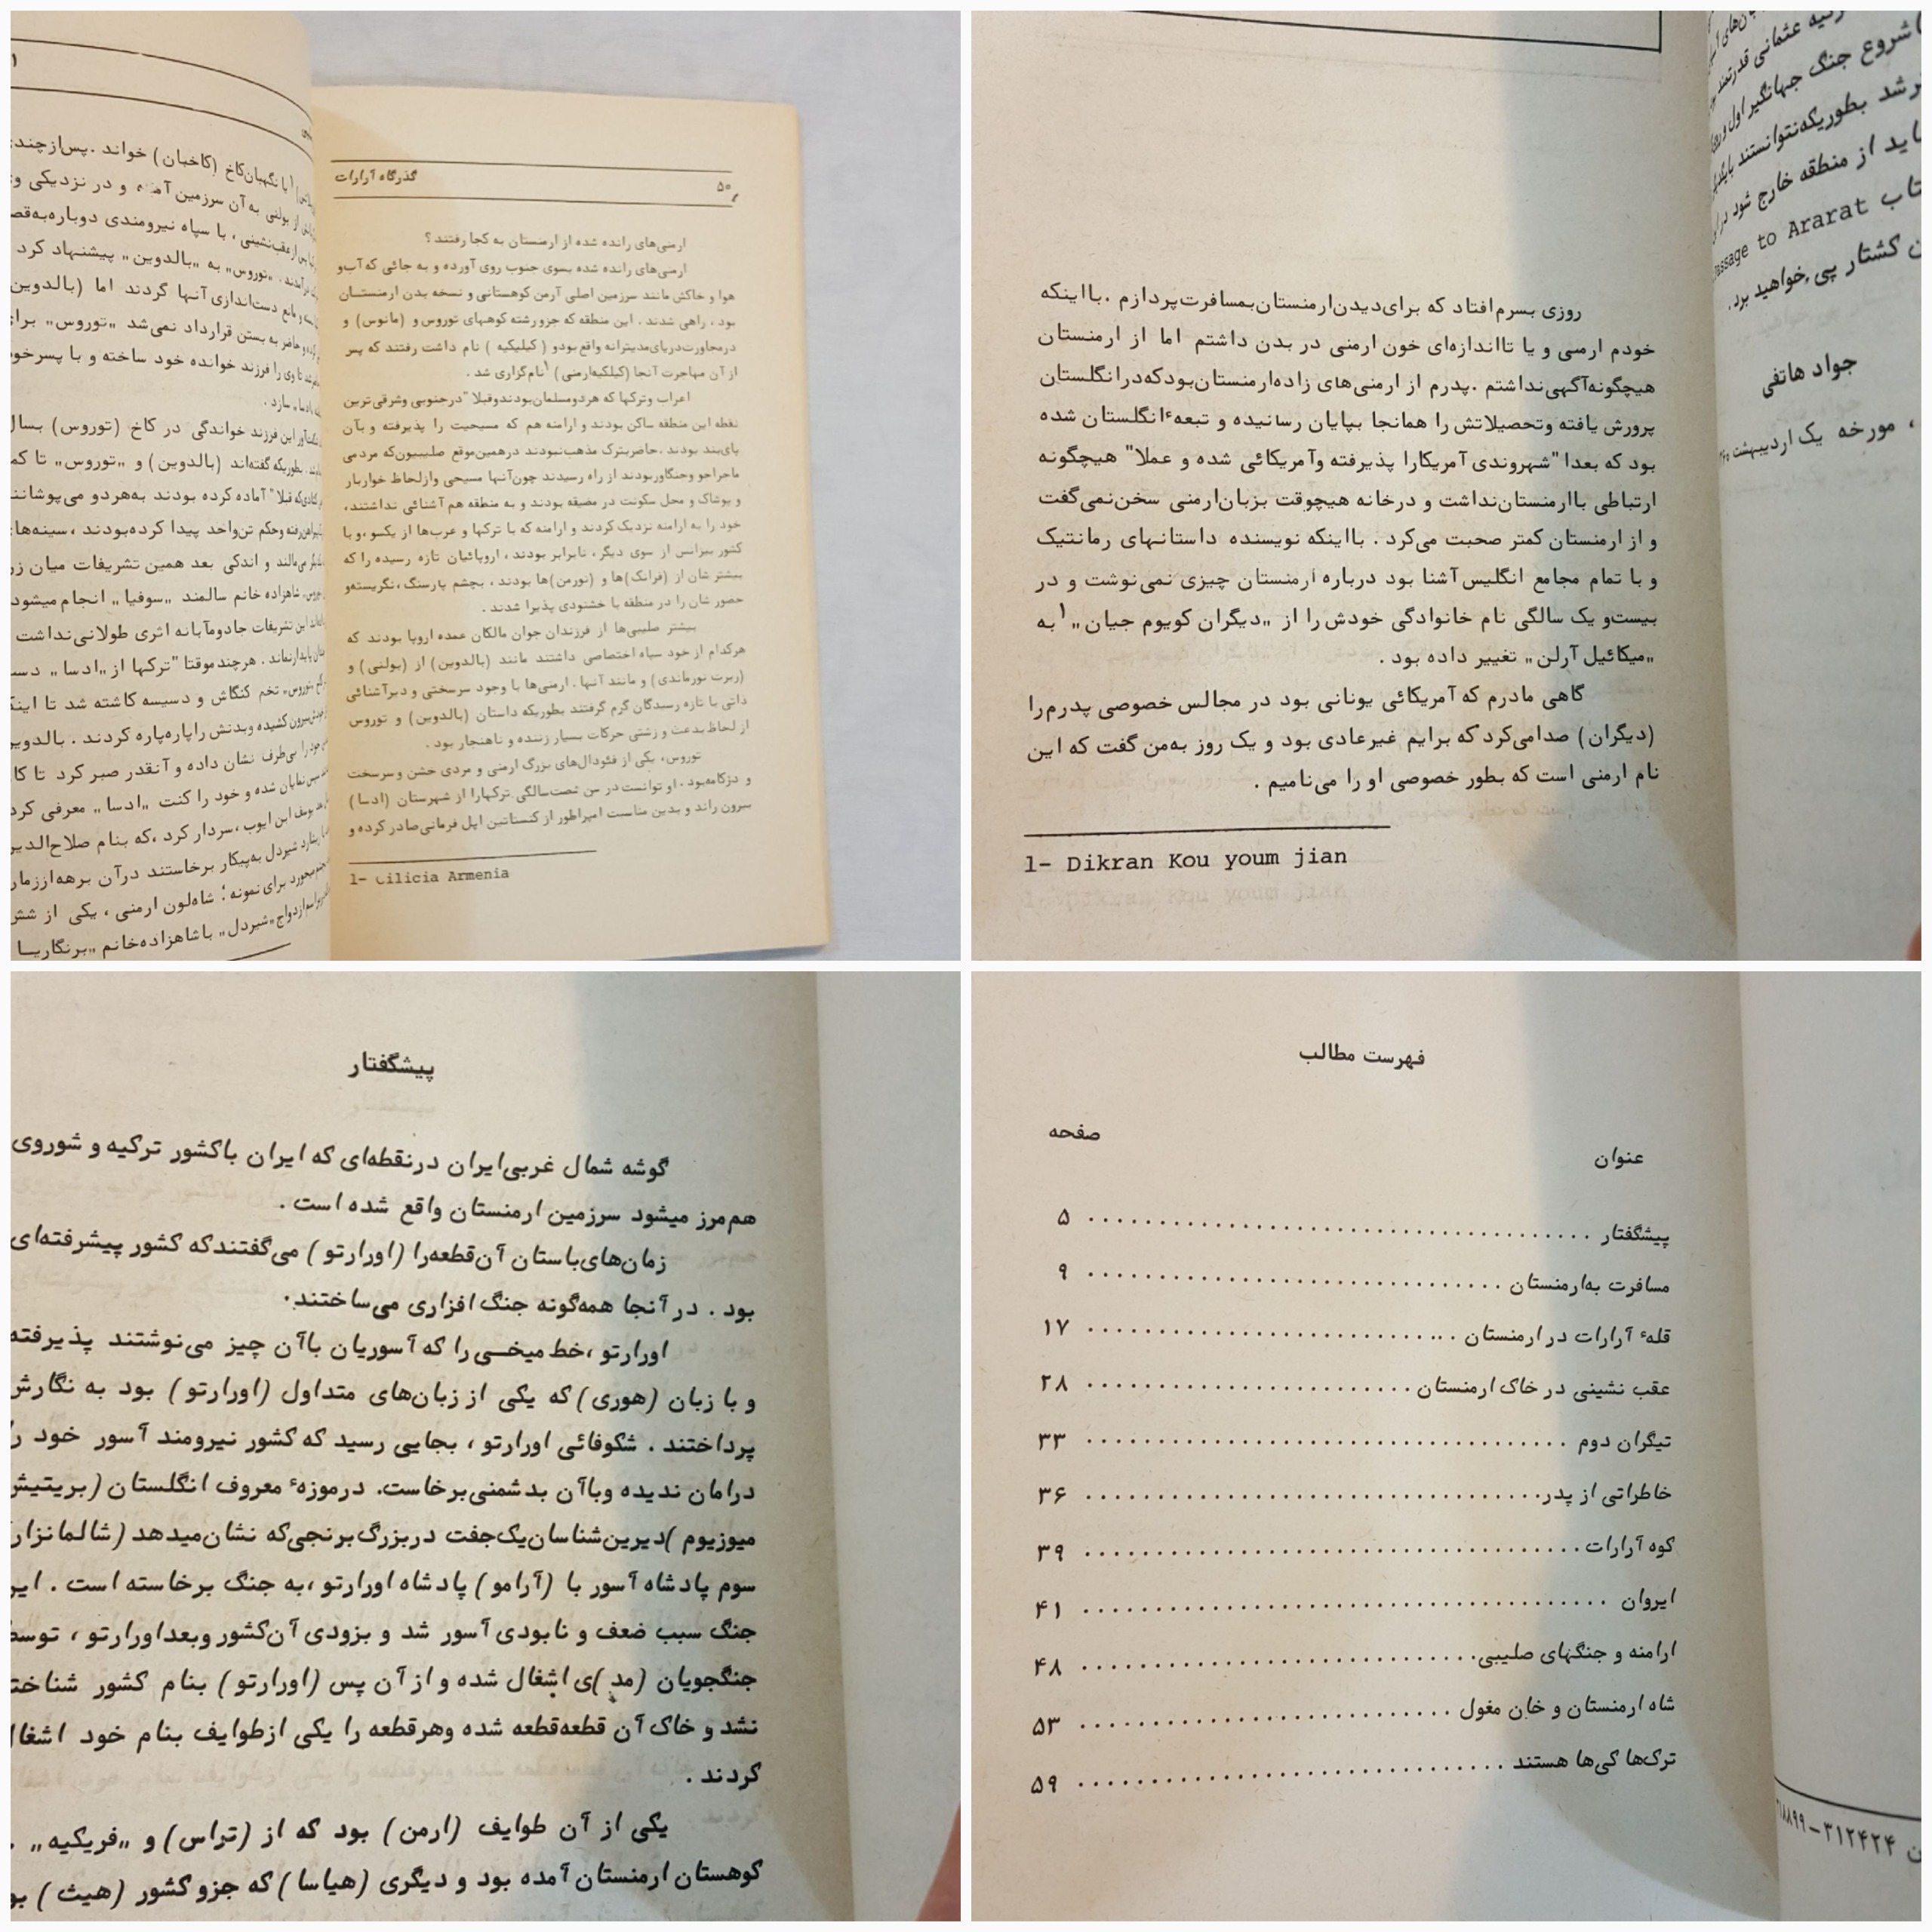 گذرگاه آرارات
۵۰
ارمنی‌های رانده شده از ارمنستان به کجا رفتند ؟
ارمنی‌های رانده شده بسوی جنوب روی آورده و به جائی که آب‌و
هوا و خاکش مانند سرزمین اصلی آرمن کوهستانی و نسخه بدن ارمنستـان
بود ، راهی شدند . این منطقه که جزو رشته کوههای توروس و (مانوس) و
درمجاورت‌دریای‌مدیترانه واقع بودو ( کیلیکیه ) نام داشت رفتند که پس
از آن مهاجرت آنجا (کیلکیه‌ارمنی)۱نام‌گزاری شد .
اعراب وترکها که هردومسلمان‌بودندوقبلا" درجنوبی وشرقی‌ترین
نقطه این منطقه ساکن بودند و ارامنه هم که مسیحیت را پذیرفته وبآن
پای‌بند بودند . حاضربترک مذهب‌نبودند درهمین‌موقع صلیبیون‌که مردمی
ماجراجو وجنگاوربودند از راه رسیدند چون‌آنها مسیحی وازلحاظ خواربار
و پوشاک و محل سکونت در مضیقه بودند و به منطقه هم آشنائی نداشتند،
خود را به ارامنه نزدیک کردند و ارامنه که با ترکها و عرب‌ها از یکسو،و با
کشور بیزانس از سوی دیگر ، نابرابر بودند ، اروپائیان تازه رسیده را که
بیشتر شان از (فرانک)ها و (نورمن)ها بودند ، بچشم پارسنگ ،نگریسته‌و
حضور شان را در منطقه با خشنودی پذیرا شدند .
بیشتر صلیبی‌ها از فرزندان جوان مالکان عمده اروپا بودند که
هرکدام از خود سپاه اختصاصی داشتند مانند (بالدوین) از (بولنی) و
(ربرت نورماندی) و مانند آنها . ارمنی‌ها با وجود سرسختی و دیرآشنائی
ذاتی با تازه رسیدگان گرم گرفتند بطوریکه داستان (بالدوین) و توروس
از لحاظ بدعت و زشتی حرکات بسیار زننده و ناهنجار بود .
توروس، یکی از فئودال‌های بزرگ ارمنی و مردی خشن وسرسخت
و دژکامه‌بود . او توانست در سن شصت‌سالگی ترکهارا از شهرستان (ادسا)
بیرون راند و بدین مناسبت امپراطور از کنستانتین اپل فرمانی‌صادر کرده و
1- Cilicia Armenia
با نگهبان‌کاخ (کاخبان) خواند .پس‌ازچند
از بولنی به آن سرزمین و در نزدیکی
ازعقب‌نشینی ، با سپاه نیرومندی دوباره‌به‌قصد
„توروس„ به „بالدوین„ پیشنهاد کرد
مانع دست‌اندازی آنها گردند اما (بالدوین
حاضر به بستن قرارداد نمی‌شد „توروس„ برای
تا وی را فرزند خوانده خود ساخته و با پسرخود
سازد .
این فرزند خواندگی در کاخ (توروس) بسال
بطوریکه گفته‌اند (بالدوین) و „توروس„ تا کمر
قبلا" آماده کرده بودند به‌هردو می‌پوشانند
وحکم تن‌واحد پیدا کرده‌بودند ،سینه‌ها
می‌مالند و اندکی بعد همین تشریفات میان زن
شاهزاده خانم سالمند „سوفیا„ انجام میشود
این تشریفات جادومآبانه اثری طولانی‌نداشت
هرچند موقتا" ترکها از „ادسا„
تخم کنگاش و دسیسه کاشته شد تا اینکه
بیرون کشیده وبدنش راپاره‌پاره کردند . بالدوین
بی‌طرف نشان داده و آنقدر صبر کرد تا
نمایان شده و خود را کنت „ادسا„ معرفی کرد
یوسف ابن ایوب ،سردار کرد ،که بنام صلاح‌الدین
شیردل به‌پیکار برخاستند درآن برهه‌اززمان
برای نمونه ؛ شاه‌لون ارمنی ، یکی از شش
ازدواج„شیردل„ باشاهزاده‌خانم „برنگاریـا
روزی بسرم‌افتاد که برای‌دیدن‌ارمنستان‌بمسافرت‌پردازم .بااینکه
خودم ارمنی و یا تااندازه‌ای خون ارمنی در بدن داشتم اما از ارمنستان
هیچگونه‌آگهی‌نداشتم .پدرم از ارمنی‌های زاده‌ارمنستان‌بودکه‌درانگلستان
پرورش یافته وتحصیلاتش را همانجا بپایان رسانیده و تبعهٔ‌انگلستان شده
بود که بعدا" شهروندی آمریکارا پذیرفته وآمریکائی شده و عملا" هیچگونه
ارتباطی باارمنستان‌نداشت و درخانه هیچوقت بزبان‌ارمنی سخن‌نمی‌گفت
و از ارمنستان کمتر صحبت می‌کرد . بااینکه نویسنده داستانـهای رمانتیک
و با تمام مجامع انگلیس‌آشنا بود درباره ارمنستان چیزی نمی‌نوشت و در
بیست‌و یک سالگی نام خانوادگی خودش را از „دیگران کویوم جیان„۱به
„میکائیل آرلن„ تغییر داده بود .
گاهی مادرم که آمریکائی یونانی بود در مجالس خصوصی پدرم‌را
(دیگران) صدامی‌کرد که برایم غیرعادی بود و یک روز به‌من گفت که این
نام ارمنی است که بطور خصوصی او را می‌نامیم .
1- Dikran Kou youm jian
عثمانی قدرتمند
شروع جنگ جهانگیر اول
شد بطوریکه‌نتوانستند
از منطقه خارج شود
passage to Ararat
کشتار پی‌خواهید برد.
جواد هاتفی
، مورخه یک اردیبهشت
پیشگفتار
گوشه شمال غربی‌ایران درنقطه‌ای که ایران باکشور ترکیه و شوروی
هم‌مرز میشود سرزمین ارمنستان واقع شده است .
زمان‌های‌باستان آن‌قطعه‌را (اورارتو ) می‌گفتندکه کشور پیشرفته‌ای
بود . در آنجا همه‌گونه جنگ افزاری می‌ساختند.
اورارتو ،خط میخـی را که آسوریان باآن چیز می‌نوشتند پذیرفته
و با زبان (هوری) که یکی از زبان‌های متداول (اورارتو ) بود به نگارش
پرداختند . شکوفائی اورارتو ، بجایی رسید که کشور نیرومند آسور خود را
درامان ندیده وباآن بدشمنی‌برخاست. درموزهٔ معروف انگلستان (بریتیش
میوزیوم )دیرین‌شناسان‌یک‌جفت دربزرگ‌برنجی‌که نشان‌میدهد (شالمانزار
سوم پادشاه آسور با (آرامو ) پادشاه اورارتو ،به جنگ برخاسته است . این
جنگ سبب ضعف و نابودی آسور شد و بزودی آن‌کشور وبعداورارتو ، توسط
جنگجویان (مد )ی اشغال شده و از آن پس (اورارتو ) بنام کشور شناخته
نشد و خاک آن قطعه‌قطعه شده وهرقطعه را یکی ازطوایف بنام خود اشغال
کردند .
یکی از آن طوایف (ارمن) بود که از (تراس) و „فریکیه„
کوهستان ارمنستان آمده بود و دیگری (هیاسا ) که جزو کشور (هیث )
فهرست مطالب
عنوان
صفحه
پیشگفتار ........ ۵
مسافرت به‌ارمنستان ........ ۹
قلهٔ آرارات در ارمنستان ........ ۱۷
عقب نشینی در خاک ارمنستان ........ ۲۸
تیگران دوم ........ ۳۳
خاطراتی از پدر ........ ۳۶
کوه آرارات ........ ۳۹
ایروان ........ ۴۱
ارامنه و جنگهای صلیبی ........ ۴۸
شاه ارمنستان و خان مغول ........ ۵۳
ترک‌ها کی‌ها هستند ........ ۵۹
۳۱۲۴۲۴